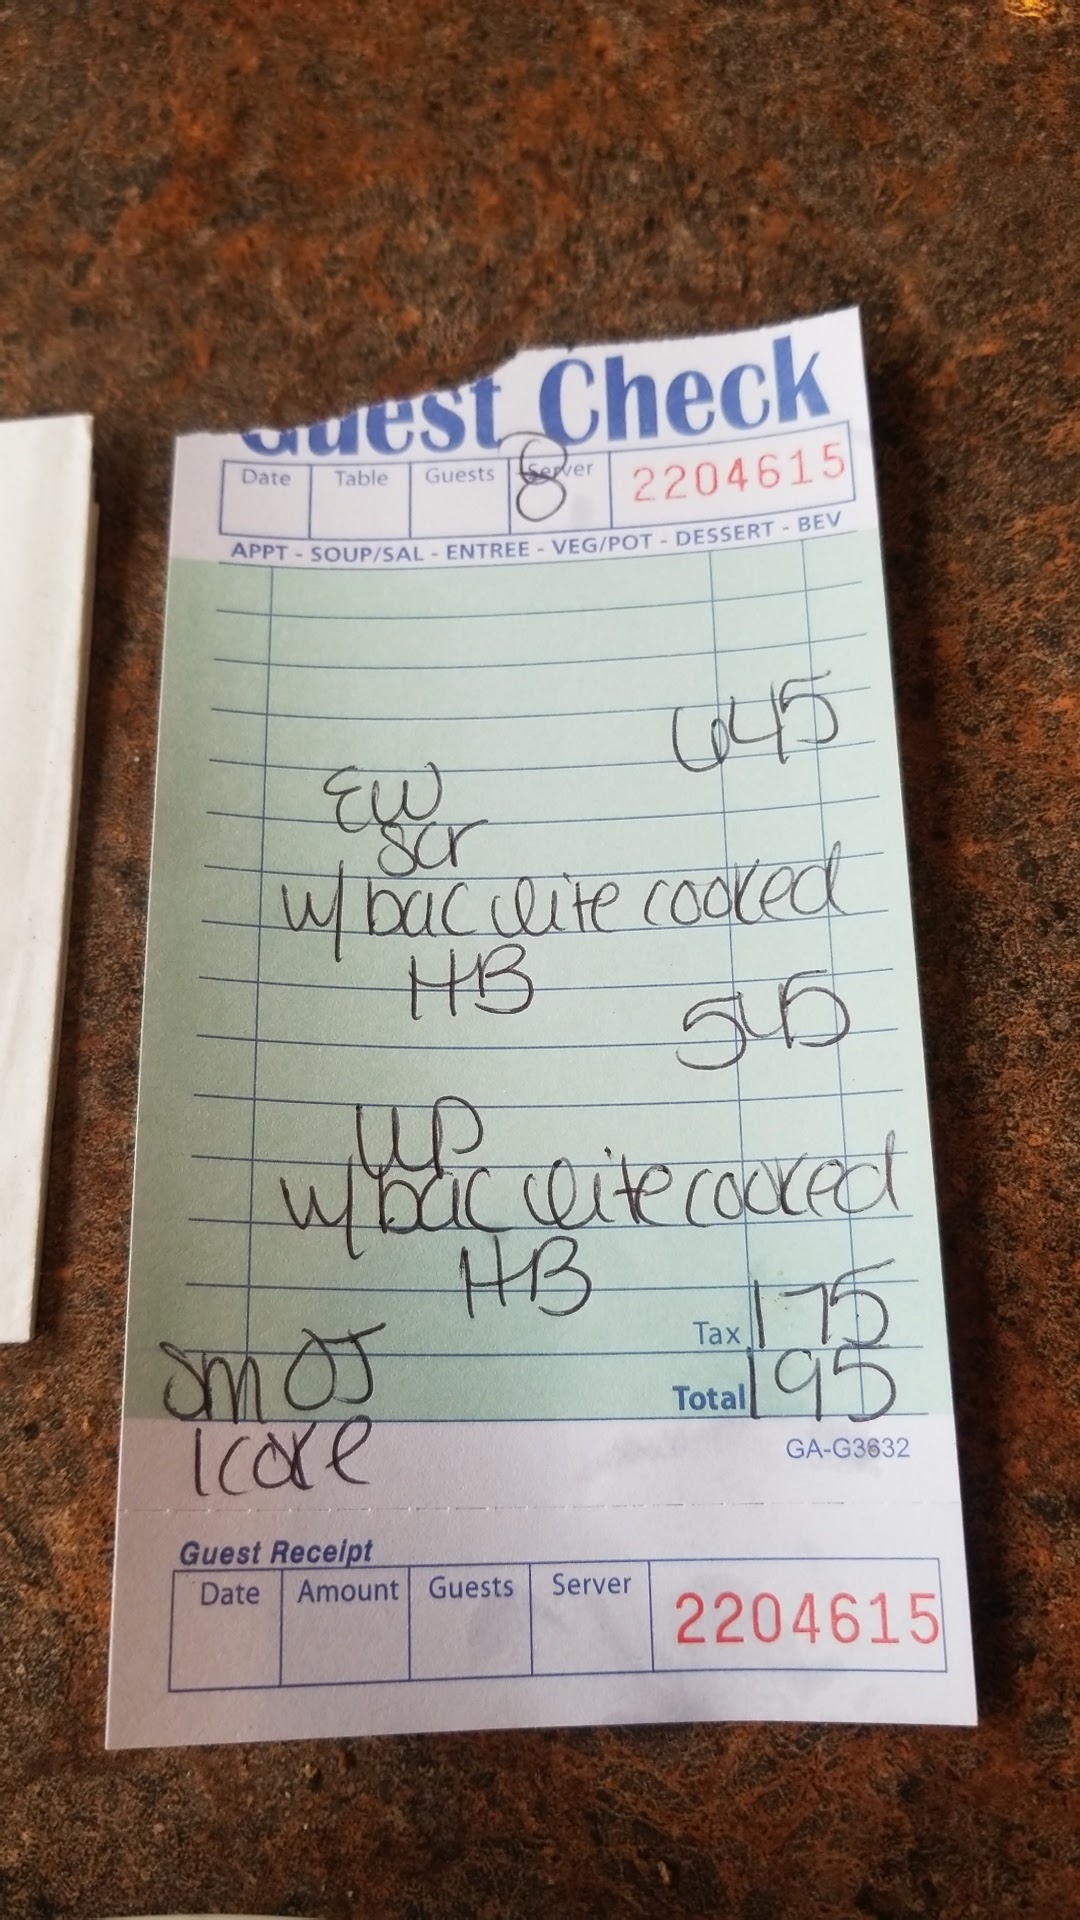 Guest Check
Date Table Guests Server 2204615
8
APPT - SOUP/SAL - ENTREE - VEG/POT - DESSERT - BEV
645
EW
scr
w/ bac lite cooked
HB
545
UP
w/ bac lite cooked
HB
Tax 175
sm OJ
Total 195
1 coke
GA-G3632
Guest Receipt
Date Amount Guests Server 2204615